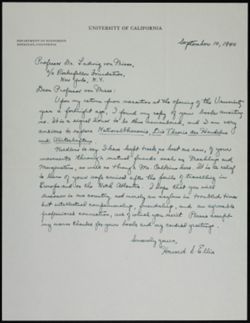 UNIVERSITY OF CALIFORNIA
DEPARTMENT OF ECONOMICS
BERKELEY, CALIFORNIA
September 10, 1940
Professor Dr. Ludwig von Mises,
c/o Rockefeller Foundation,
New York, N.Y.
Dear Professor von Mises:
Upon my return from vacation at the opening of the University
a fortnight ago, I found my copy of your book awaiting
me. It is a signal honor to be thus remembered, and I am very
anxious to explore Nationalökonomie, Die Theorie des Handelns
und Wirtschaftens.
Needless to say I have kept track as best we can, of your
movements through mutual friends such as Machlup and
Morgenstern, as well as through Mr.
to learn of your safe arrival after the perils of travelling in
Europe and on the North Atlantic. I hope that you will
discover in our country not merely an asylum in troubled times
but intellectual companionship, friendship, and an agreeable
professional connection, all of which you merit. Please accept
my warm thanks for your book and my cordial greeting.
Sincerely yours,
Howard S. Ellis